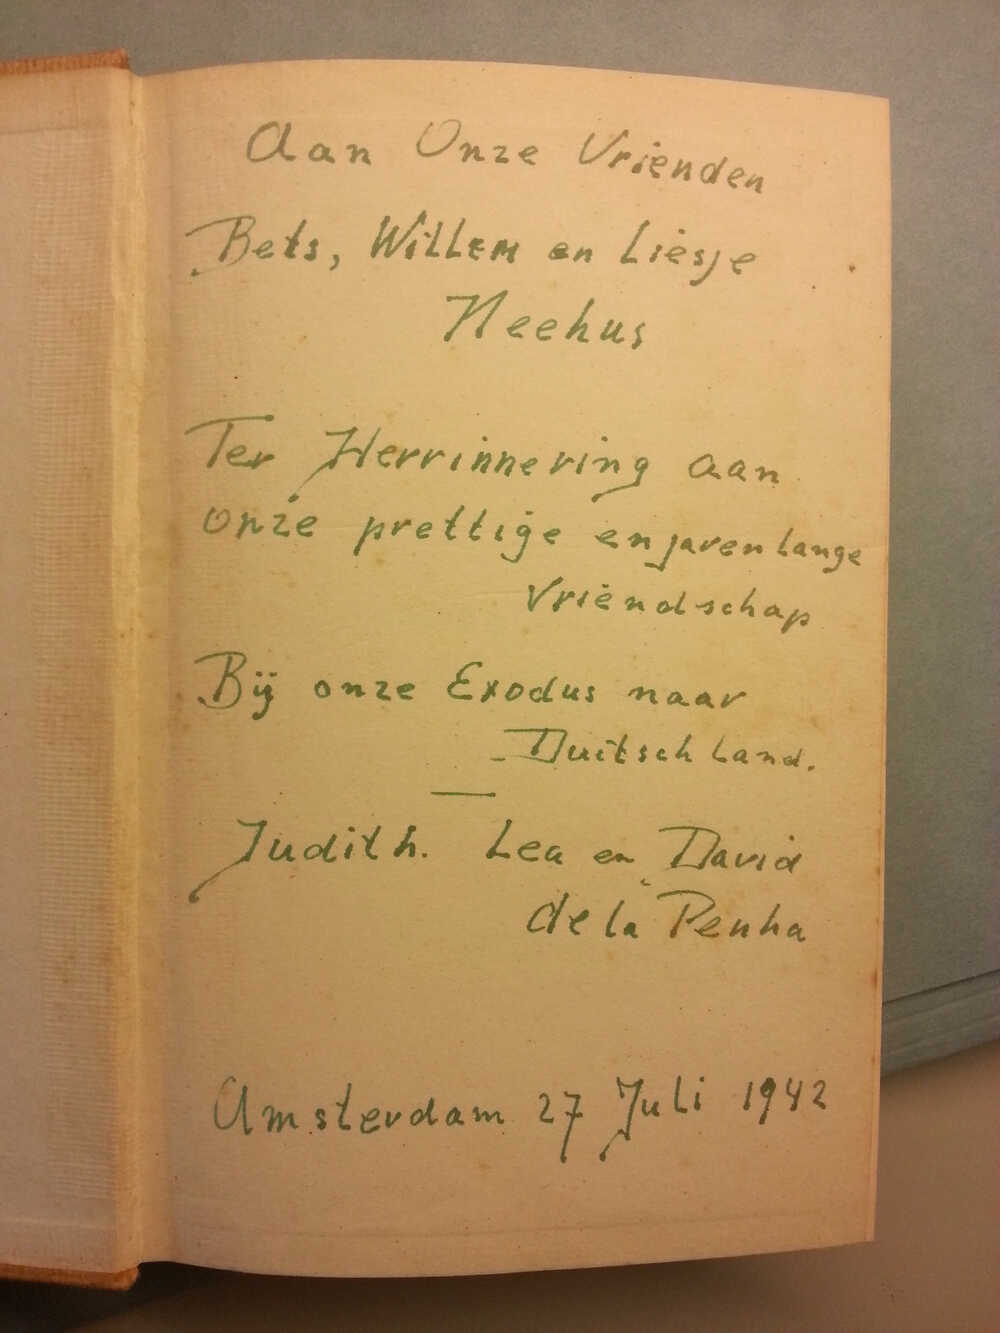 Aan Onze Vrienden
Bets, Willem en Liesje
Neehus
Ter Herrinnering aan
onze prettige en jaren lange
vriendschap
Bij onze Exodus naar
Duitschland.
Judith. Lea en David
de la Penha
Amsterdam 27 Juli 1942